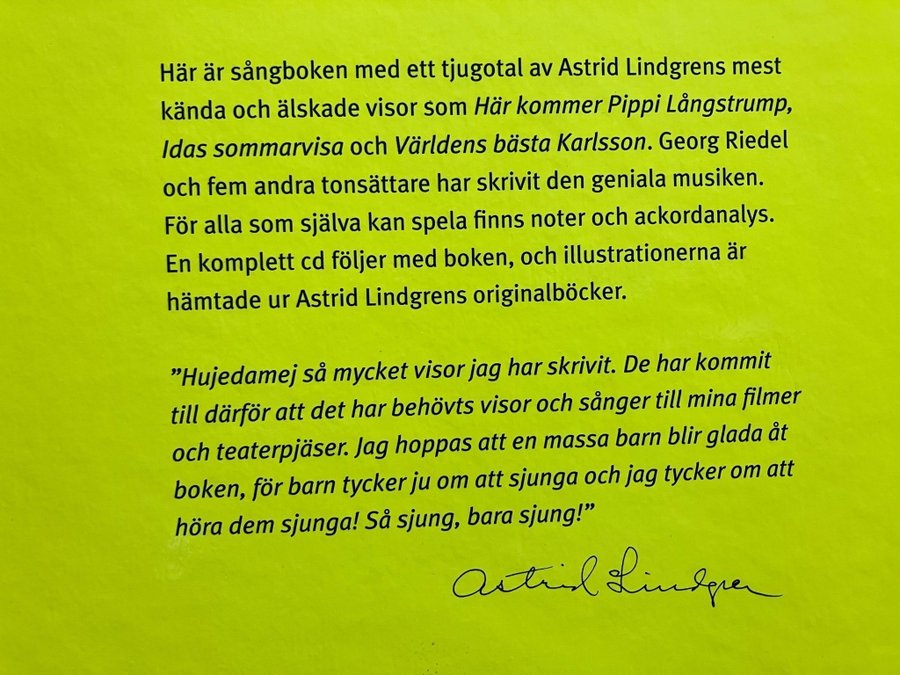 Här är sångboken med ett tjugotal av Astrid Lindgrens mest
kända och älskade visor som Här kommer Pippi Långstrump,
Idas sommarvisa och Världens bästa Karlsson. Georg Riedel
och fem andra tonsättare har skrivit den geniala musiken.
För alla som själva kan spela finns noter och ackordanalys.
En komplett cd följer med boken, och illustrationerna är
hämtade ur Astrid Lindgrens originalböcker.
”Hujedamej så mycket visor jag har skrivit. De har kommit
till därför att det har behövts visor och sånger till mina filmer
och teaterpjäser. Jag hoppas att en massa barn blir glada åt
boken, för barn tycker ju om att sjunga och jag tycker om att
höra dem sjunga! Så sjung, bara sjung!”
Astrid Lindgren